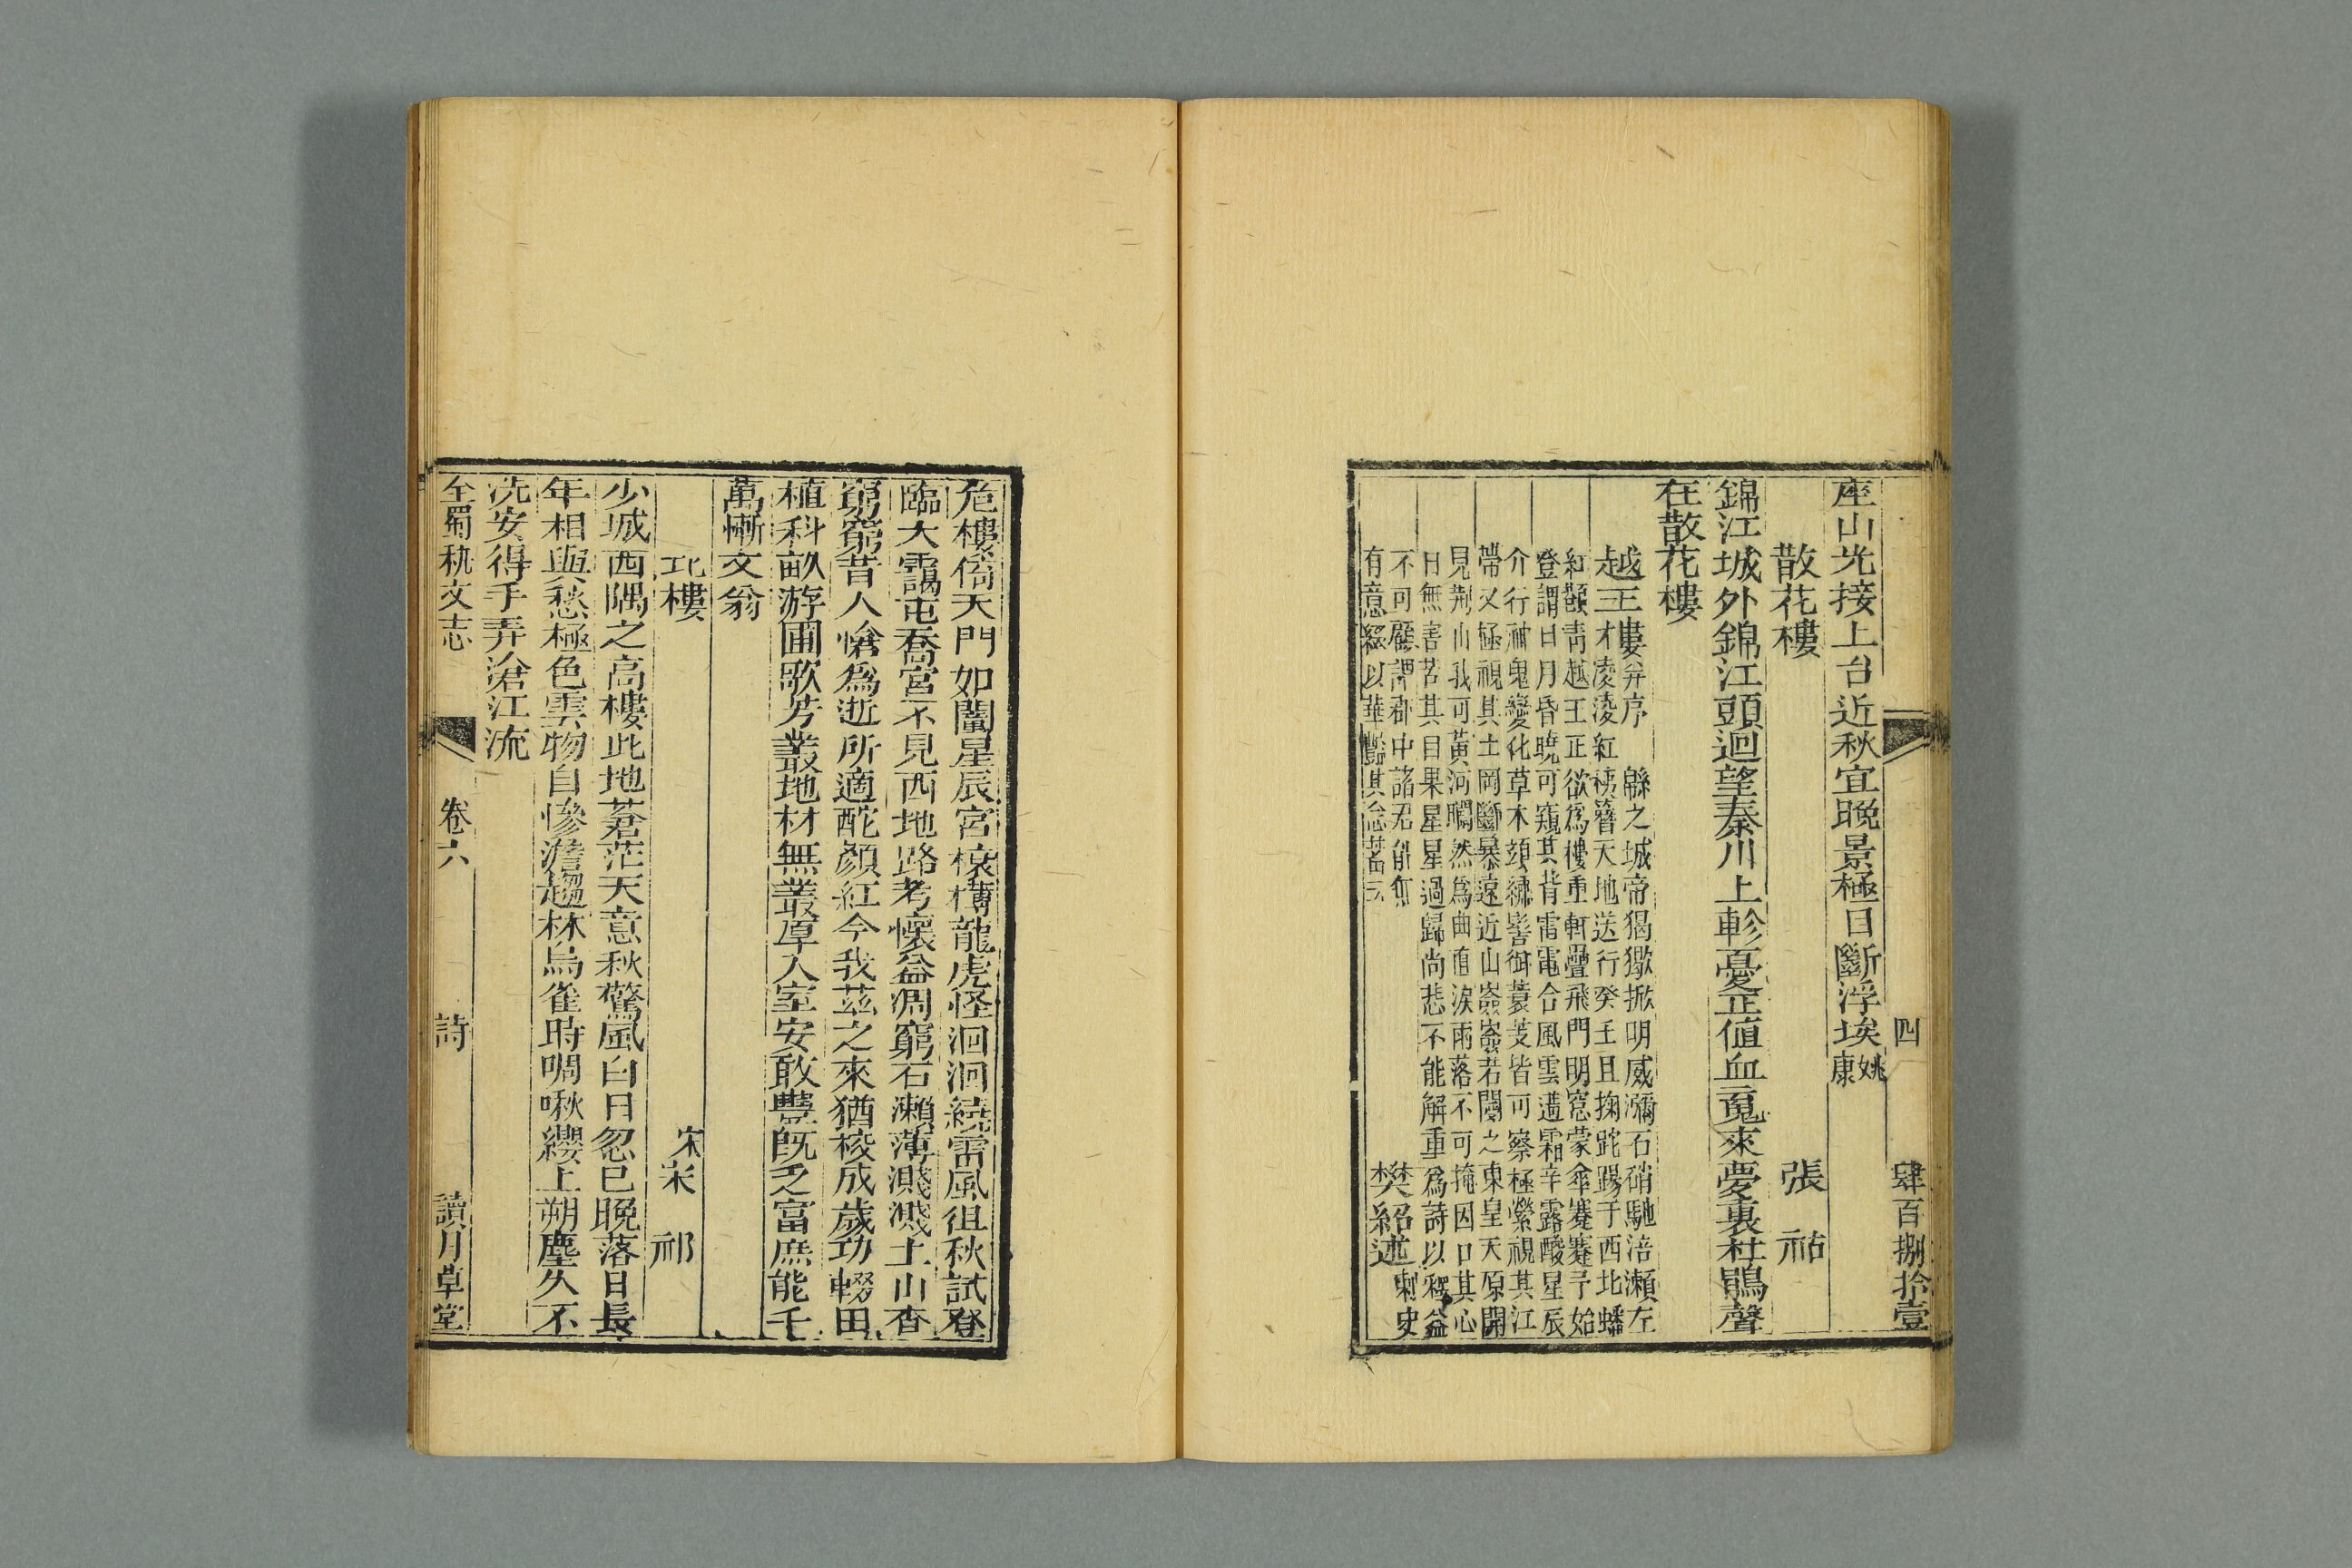 四
肆百捌拾壹
座山光接上台近秋宜晚景極目斷浮埃姚康
散花樓
張祜
錦江城外錦江頭迴望秦川上軫憂正值血䰟來夢裏杜鵑聲
在散花樓
越王樓并序
緜之城帝猲獥掀明威瀰石硝馳涪瀨左
越王才淩淩紅
天地送行癸壬且掬跎踢于西北蟠
紅顴青越王正欲為樓重軒疊飛門明窓蒙傘蹇蹇予始
登謂日月昏曉可窺其背雷電合風雲遘霜辛露酸星辰
介行神鬼變化草木
皆可察極縈視其江
帶又極視其土岡斷暴遠近山
若閡之東皇天原開
見荆山我可黃河矙然為曲直淚雨落不可掩因口其心
曰無害苦其目果星星過歸尚悲不能解重為詩以釋益
不可顧謂郡中諸君能無
有意綴以華豔其念蓄云
樊紹述
刺史
危樓倚天門如闥星辰宮榱樽龍虎怪洄洄繞雷風徂秋試登
臨大靄屯喬宮不見西地路考懷益凋窮石瀨薄濺濺土山杳
窮窮昔人愴為逝所適酡顏紅今我茲之來猶校成歲功輟田
植科畝游圃歌芳叢地材無叢厚人室安敢豐既乏富庶能千
萬慚文翁
北樓
宋宋祁
少城西隅之高樓此地蒼茫天意秋驚風白日忽已晚落日長
年相與愁極色雲物自慘澹趨林烏雀時啁啾纓上朔塵久不
洗安得手弄滄江流
全蜀秇文志
卷六
詩
讀月草堂